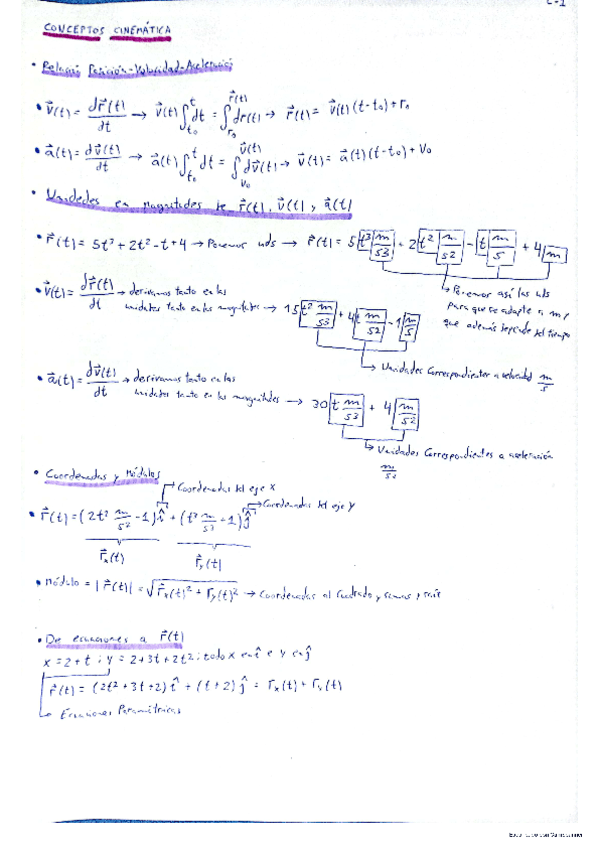 CONCEPTOS CINEMÁTICA
• Relación Posición-Velocidad-Aceleración
• v⃗(t) = dr⃗(t)/dt → v⃗(t) ∫_{t₀}^{t} dt = ∫_{r₀}^{r⃗(t)} dr(t) → r⃗(t) = v⃗(t)(t-t₀)+r₀
• a⃗(t) = dv⃗(t)/dt → a⃗(t) ∫_{t₀}^{t} dt = ∫_{v₀}^{v⃗(t)} dv⃗(t) → v⃗(t) = a⃗(t)(t-t₀) + v₀
• Unidades en magnitudes de r⃗(t), v⃗(t), a⃗(t)
• r⃗(t) = 5t³ + 2t² - t + 4 → Ponemos uds → r⃗(t) = 5 t³ m/s³ + 2 t² m/s² - t m/s + 4 m
↳ Ponemos así las uds
para que se adapte a m y
que además depende del tiempo
• v⃗(t) = dr⃗(t)/dt → derivamos tanto en las
unidades tanto en las magnitudes → 15 t² m/s³ + 4t m/s² - 1 m/s
↳ Unidades Correspondientes a velocidad m/s
• a⃗(t) = dv⃗(t)/dt → derivamos tanto en las
unidades tanto en las magnitudes → 30 t m/s³ + 4 m/s²
↳ Unidades Correspondientes a aceleración
m/s²
• Coordenadas y Módulos
→ Coordenadas del eje X
→ Coordenadas del eje Y
• r⃗(t) = (2t² m/s² - 1) î + (t³ m/s³ - 1) ĵ
r⃗x(t) r⃗y(t)
• Módulo = |r⃗(t)| = √(r⃗x(t)² + r⃗y(t)²) → Coordenadas al cuadrado y sumas y raíz
• De ecuaciones a r⃗(t)
x = 2 + t ; y = 2 + 3t + 2t² ; todo x en î e y en ĵ
r⃗(t) = (2t² + 3t + 2) î + (t + 2) ĵ = rx(t) + ry(t)
↳ Ecuaciones Paramétricas